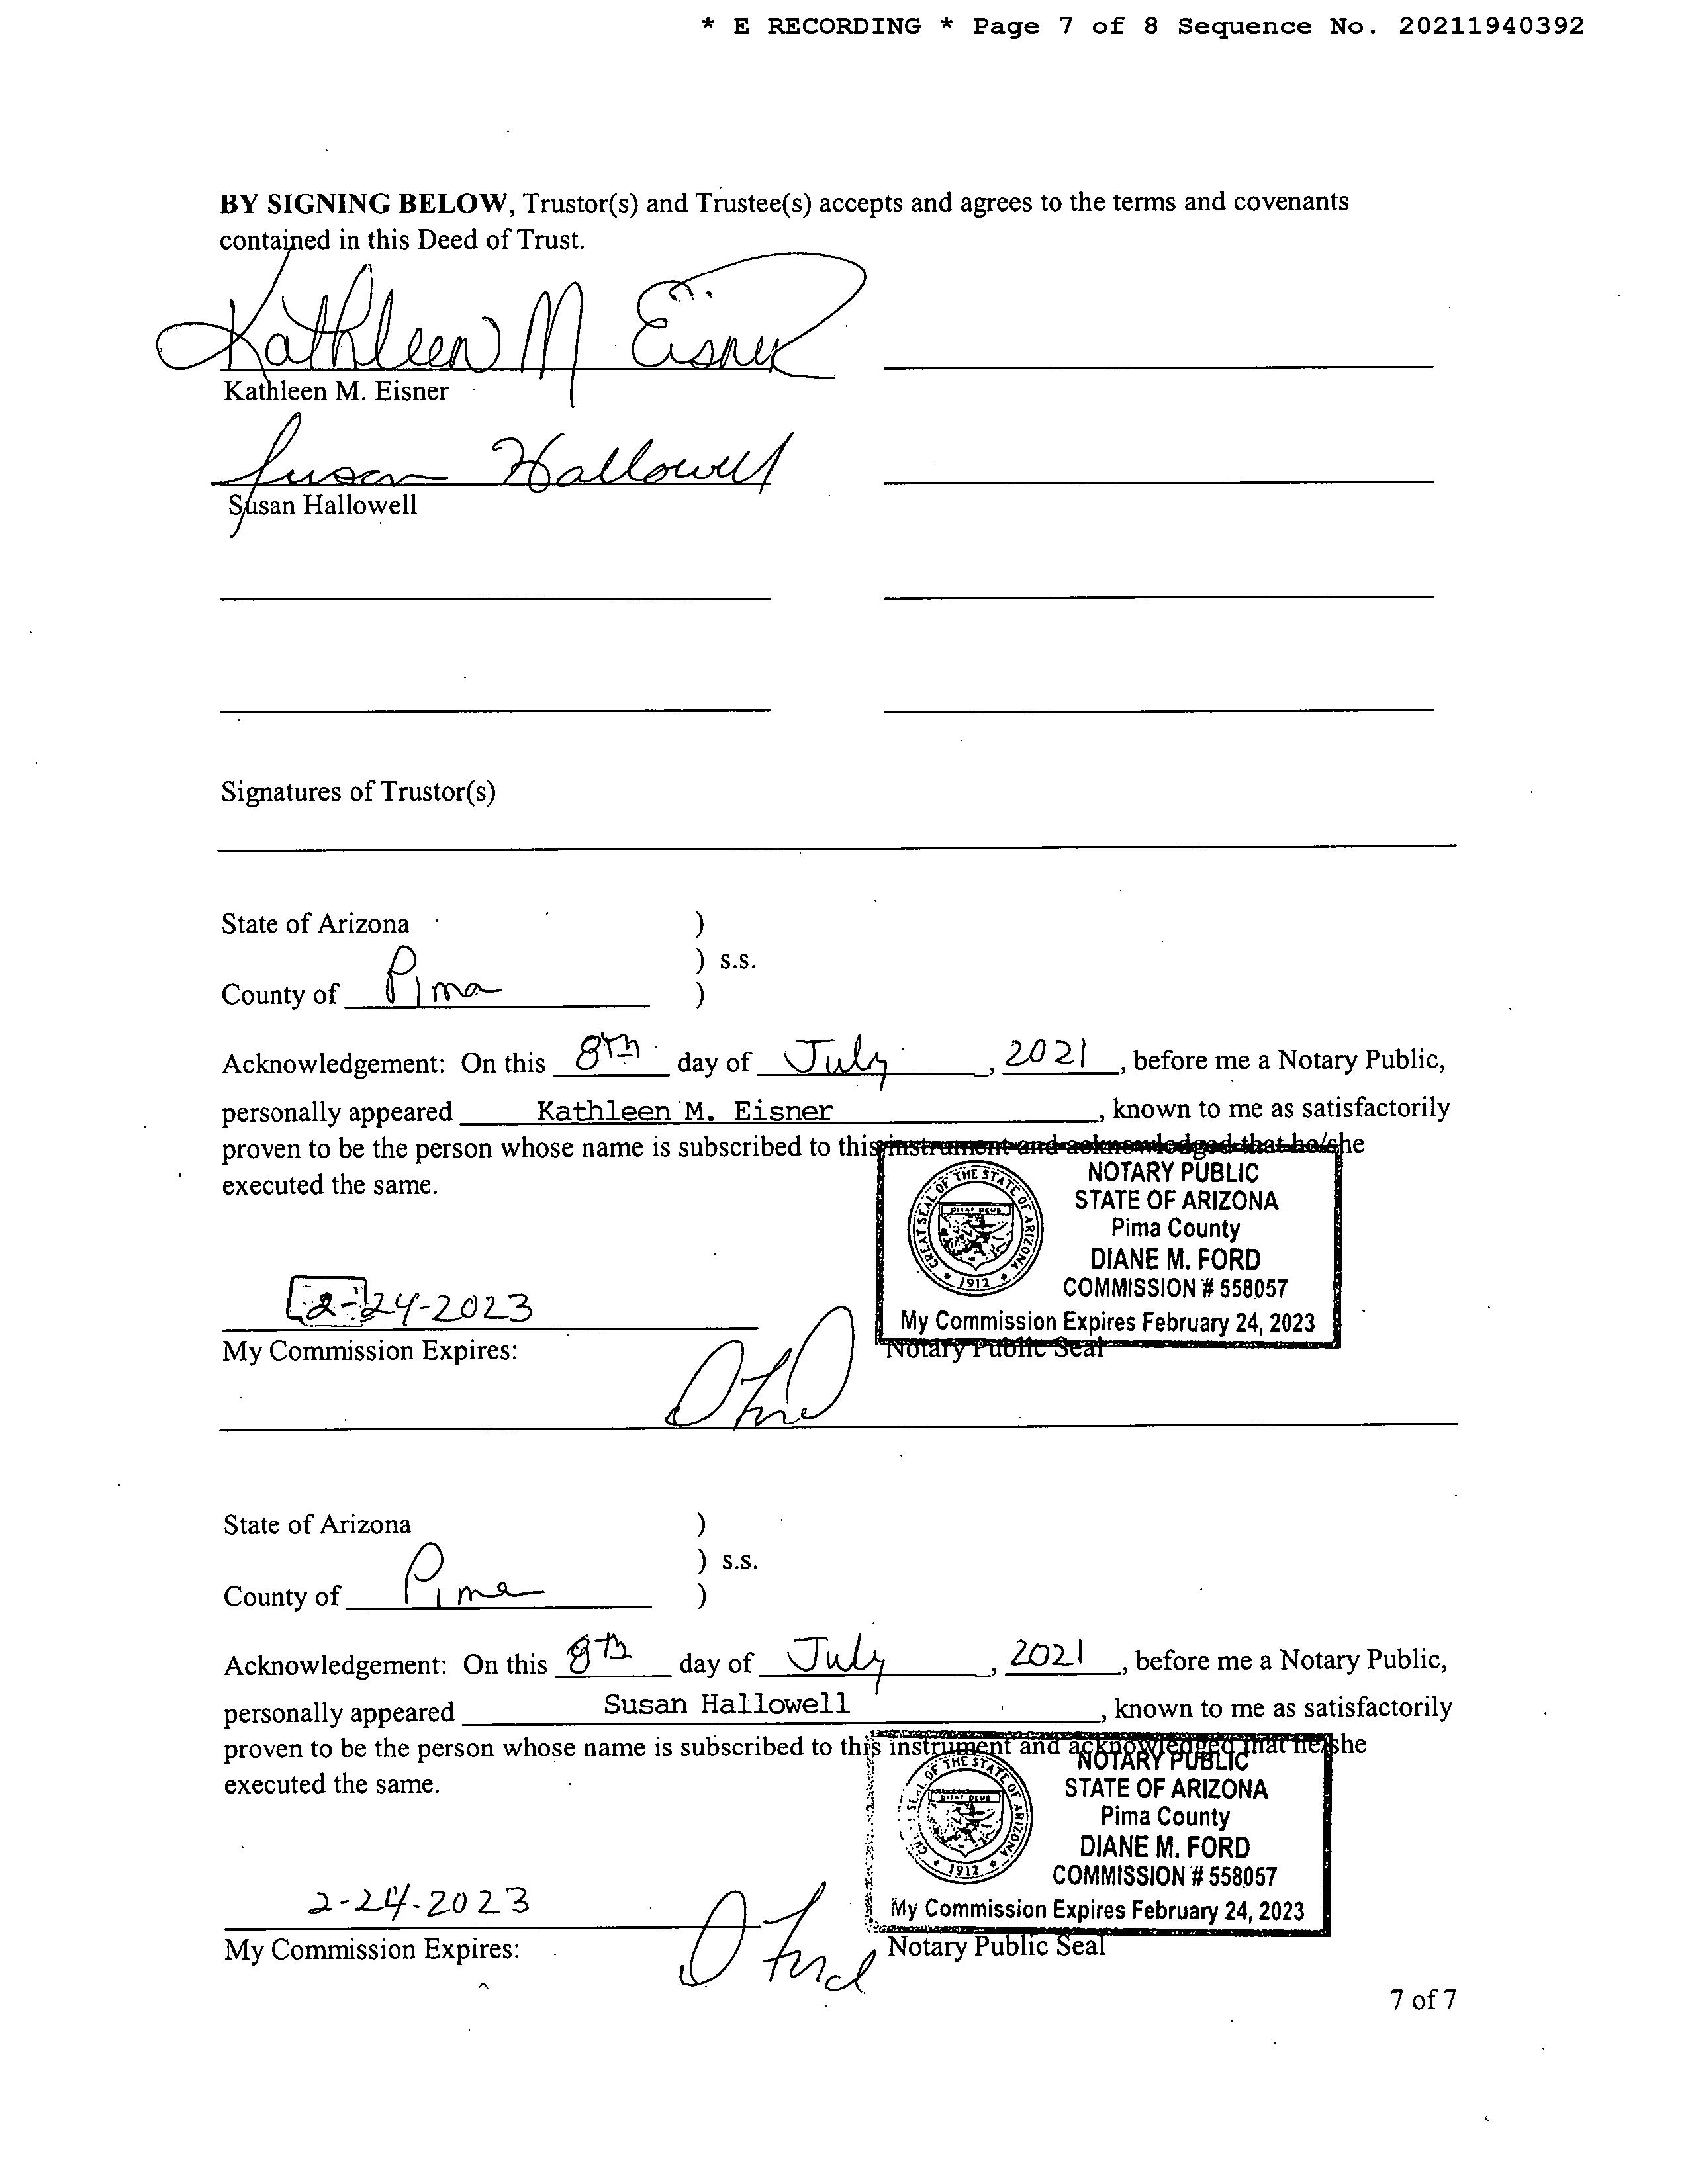 * E RECORDING * Page 7 of 8 Sequence No. 20211940392
BY SIGNING BELOW, Trustor(s) and Trustee(s) accepts and agrees to the terms and covenants
contained in this Deed of Trust.
Kathleen M Eisner
Kathleen M. Eisner
Susan Hallowell
Susan Hallowell
Signatures of Trustor(s)
State of Arizona )
) s.s.
County of Pima )
Acknowledgement: On this 8th day of July, 2021, before me a Notary Public,
personally appeared Kathleen M. Eisner, known to me as satisfactorily
proven to be the person whose name is subscribed to this instrument and acknowledged that he/she
executed the same.
GREAT SEAL OF THE STATE OF ARIZONA
DITAT DEUS
1912
NOTARY PUBLIC
STATE OF ARIZONA
Pima County
DIANE M. FORD
COMMISSION # 558057
My Commission Expires February 24, 2023
2-24-2023
My Commission Expires:
Notary Public Seal
D Ford
State of Arizona )
) s.s.
County of Pima )
Acknowledgement: On this 8th day of July, 2021, before me a Notary Public,
personally appeared Susan Hallowell, known to me as satisfactorily
proven to be the person whose name is subscribed to this instrument and acknowledged that he/she
executed the same.
OF THE STATE OF ARIZONA
DITAT DEUS
1912
NOTARY PUBLIC
STATE OF ARIZONA
Pima County
DIANE M. FORD
COMMISSION # 558057
My Commission Expires February 24, 2023
2-24-2023
My Commission Expires:
D Ford
Notary Public Seal
7 of 7